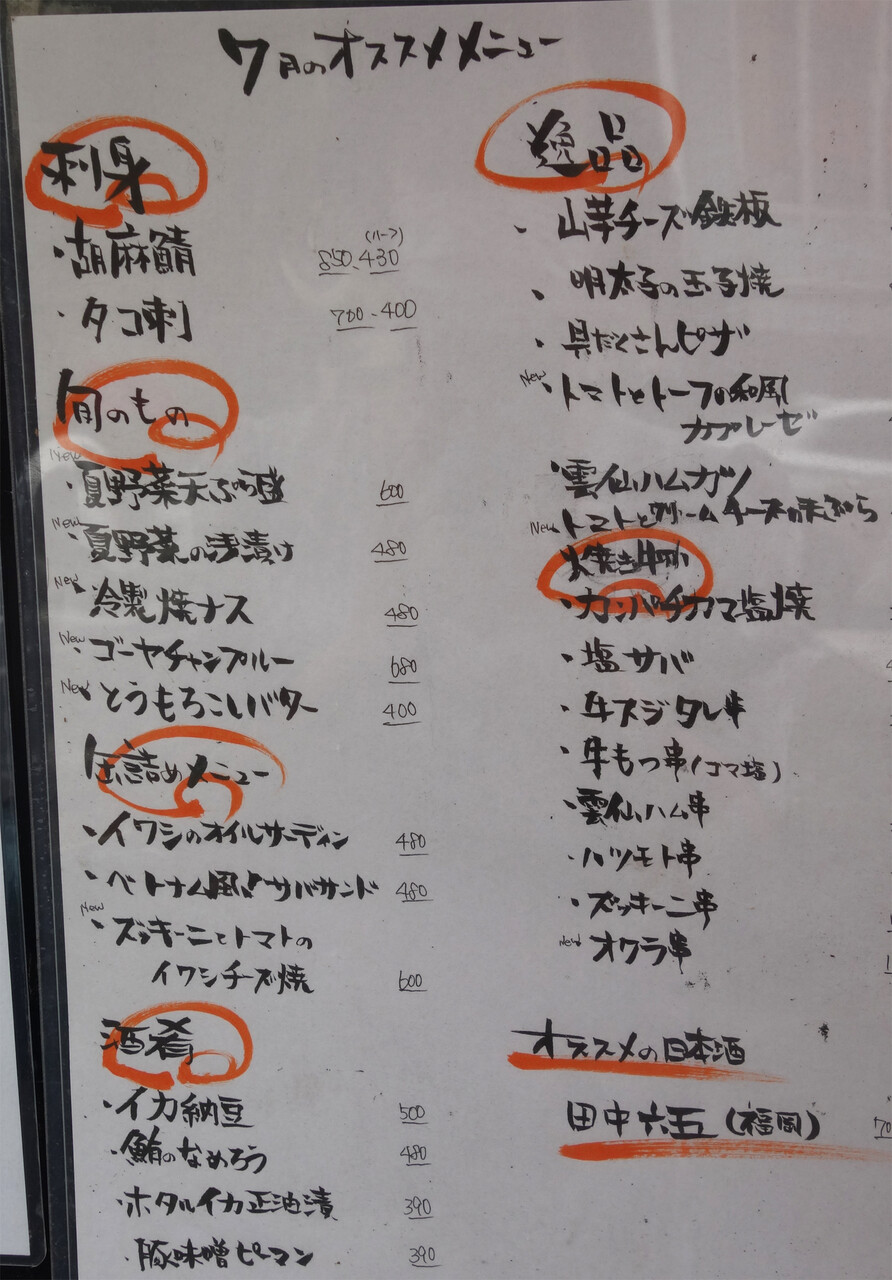 7月のオススメメニュー
刺身
・胡麻鯖 850、(ハーフ)430
・タコ刺 700、400
旬のもの
New・夏野菜天ぷら盛 600
New・夏野菜の浅漬け 480
New・冷製焼ナス 480
New・ゴーヤチャンプルー 680
New・とうもろこしバター 400
缶詰めメニュー
・イワシのオイルサーディン 480
・ベトナム風!サバサンド 480
New・ズッキーニとトマトの
イワシチーズ焼 600
酒肴
・イカ納豆 500
・鮪のなめろう 480
・ホタルイカ正油漬 390
・豚味噌ピーマン 390
逸品
・山芋チーズ鉄板
・明太子の玉子焼
・具だくさんピザ
New・トマトとトーフの和風
カプレーゼ
・雲仙ハムカツ
New・トマトとクリームチーズの天ぷら
焼き物
・カンパチカマ塩焼
・塩サバ
・牛スジタレ串
・牛もつ串(ゴマ塩)
・雲仙ハム串
・ハツモト串
・ズッキーニ串
New・オクラ串
オススメの日本酒
田中六五(福岡) 70